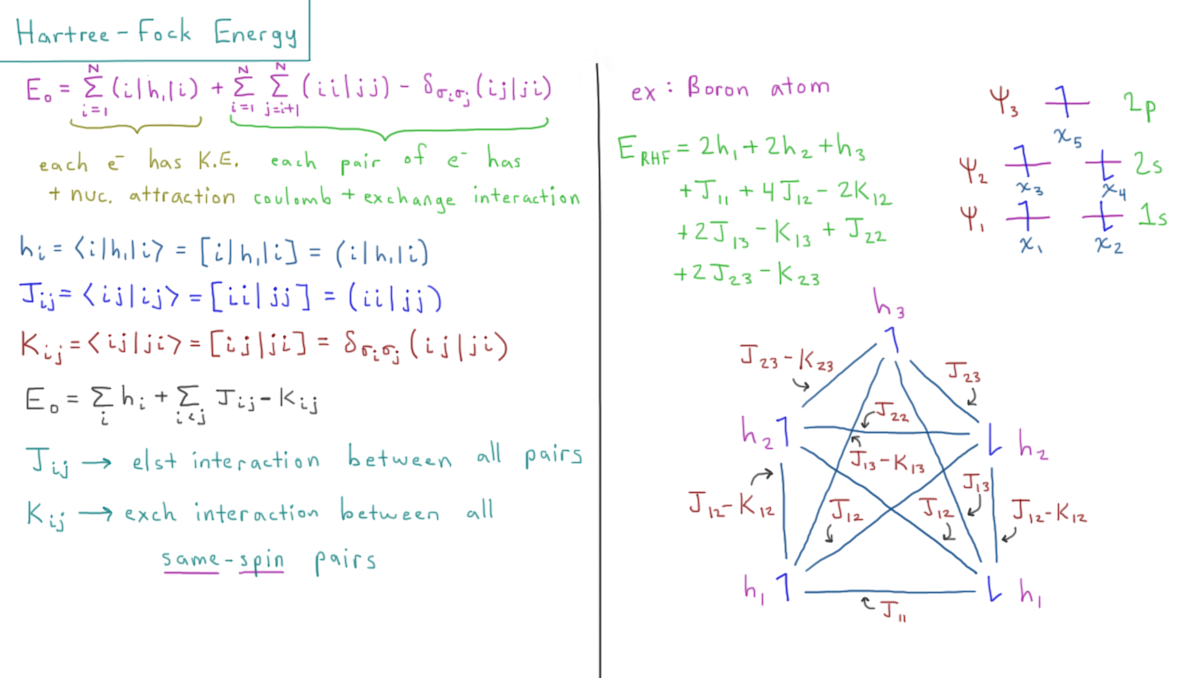 Hartree-Fock Energy
E₀ = Σᵢ₌₁ᴺ (i|h₁|i) + Σᵢ₌₁ᴺ Σⱼ₌ᵢ₊₁ᴺ (ii|jj) - δσᵢσⱼ (ij|ji)
each e⁻ has K.E. each pair of e⁻ has
+ nuc. attraction coulomb + exchange interaction
hᵢ = <i|h₁|i> = [i|h₁|i] = (i|h₁|i)
Jᵢⱼ = <ij|ij> = [ii|jj] = (ii|jj)
Kᵢⱼ = <ij|ji> = [ij|ji] = δσᵢσⱼ (ij|ji)
E₀ = Σᵢ hᵢ + Σᵢ<ⱼ Jᵢⱼ - Kᵢⱼ
Jᵢⱼ → elst interaction between all pairs
Kᵢⱼ → exch interaction between all
same-spin pairs
ex: Boron atom
E_RHF = 2h₁ + 2h₂ + h₃
+ J₁₁ + 4J₁₂ - 2K₁₂
+ 2J₁₃ - K₁₃ + J₂₂
+ 2J₂₃ - K₂₃
Ψ₃ ↿ 2p
χ₅
Ψ₂ ↿ ⇂ 2s
χ₃ χ₄
Ψ₁ ↿ ⇂ 1s
χ₁ χ₂
h₃
↿
J₂₃-K₂₃
J₂₃
J₂₂
h₂ ↿
⇂ h₂
J₁₃-K₁₃
J₁₃
J₁₂-K₁₂
J₁₂
J₁₂
J₁₂-K₁₂
h₁ ↿
⇂ h₁
J₁₁